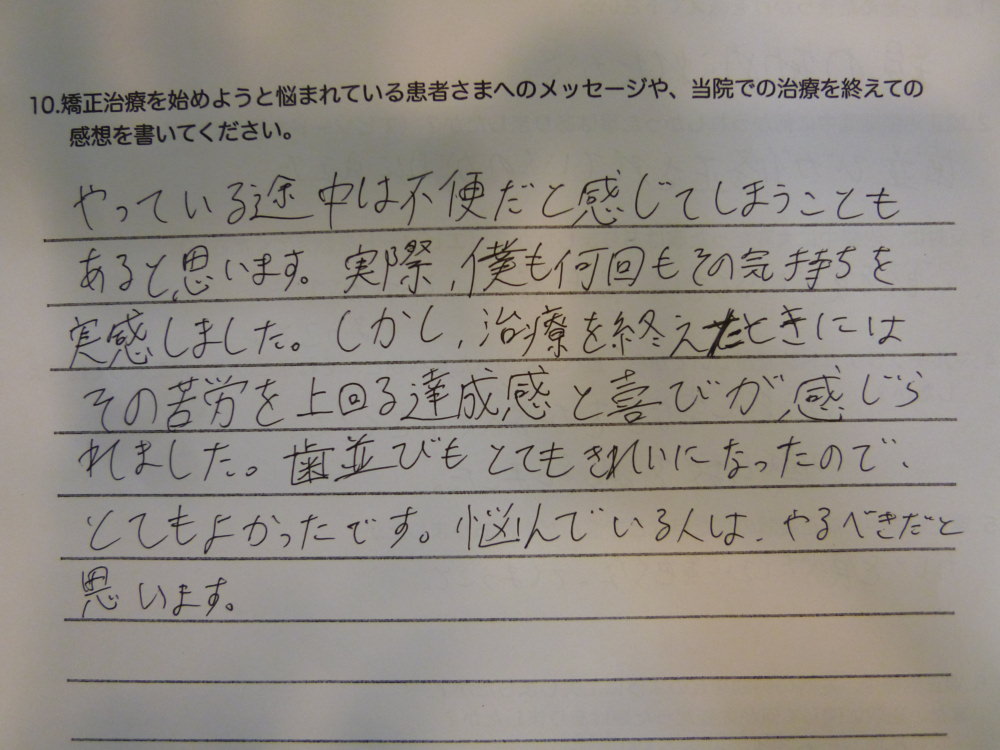 10.矯正治療を始めようと悩まれている患者さまへのメッセージや、当院での治療を終えての
感想を書いてください。
やっている途中は不便だと感じてしまうことも
あると思います。実際、僕も何回もその気持ちを
実感しました。しかし、治療を終えたときには
その苦労を上回る達成感と喜びが感じら
れました。歯並びもとてもきれいになったので、
とてもよかったです。悩んでいる人は、やるべきだと
思います。